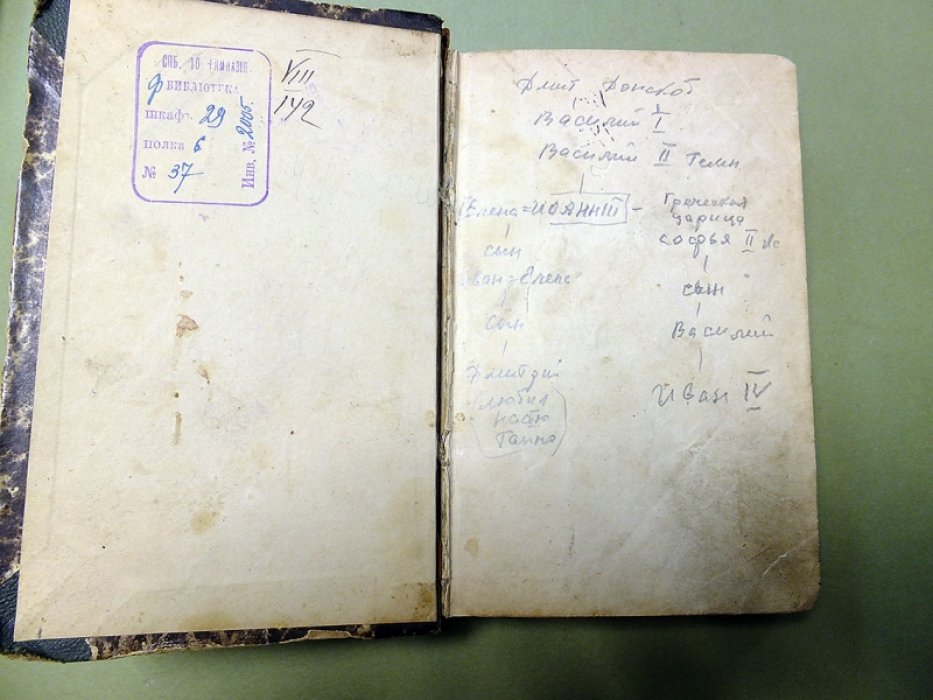 СПБ. 10 ГИМНАЗІЯ.
ф БИБЛІОТЕКА
шкафъ. 29
полка 6
№ 37
Инв. № 2005.
VIII
142
Дмит Донской
Василий I
Василий II Темн
Елена = ИОАНН III – Греческая
царица
софья II
сын
Иван = Елена
сын
Дмитрий
(любил
Таино)
сын
Василий
Иван IV